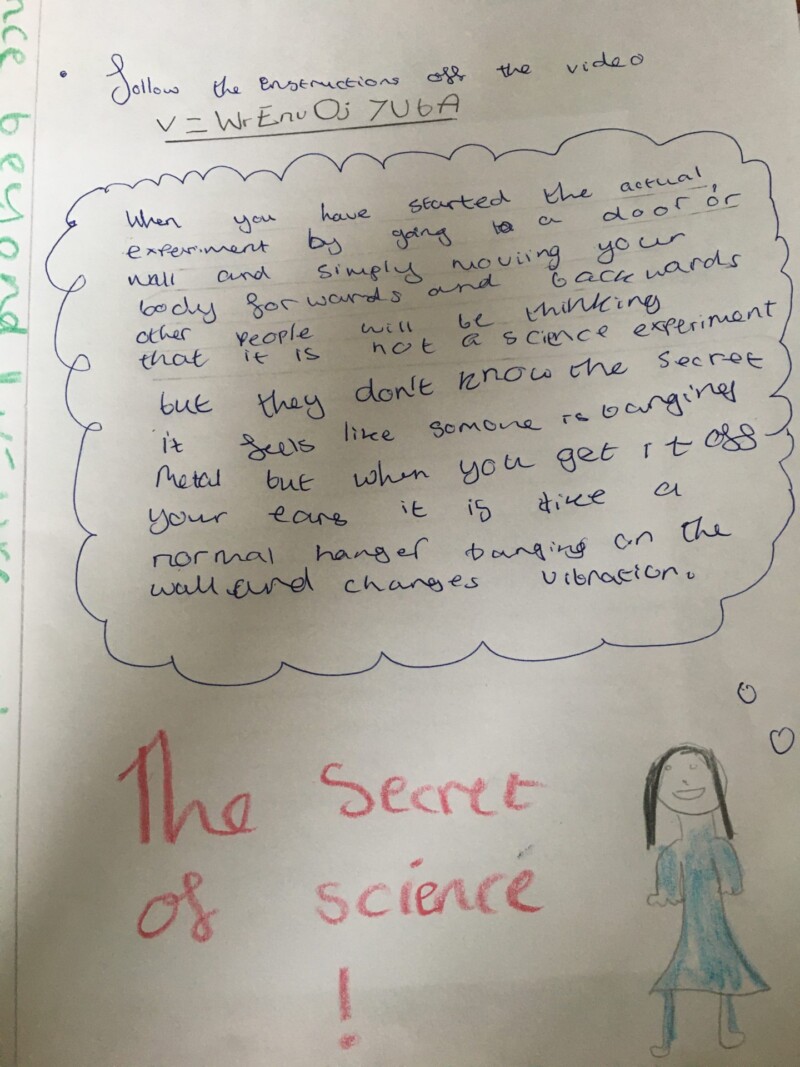 • follow the instructions off the video
V = WrEnuOj 7U6A
When you have started the actual
experiment by going to a door or
wall and simply moviing your
body forwards and backwards
other people will be thinking
that it is not a science experiment
but they don't know the secret
it feels like somone is banging
Metal but when you get it off
your ears it is like a
normal hanger banging on the
wall and changes vibration.
The Secret
of science
!